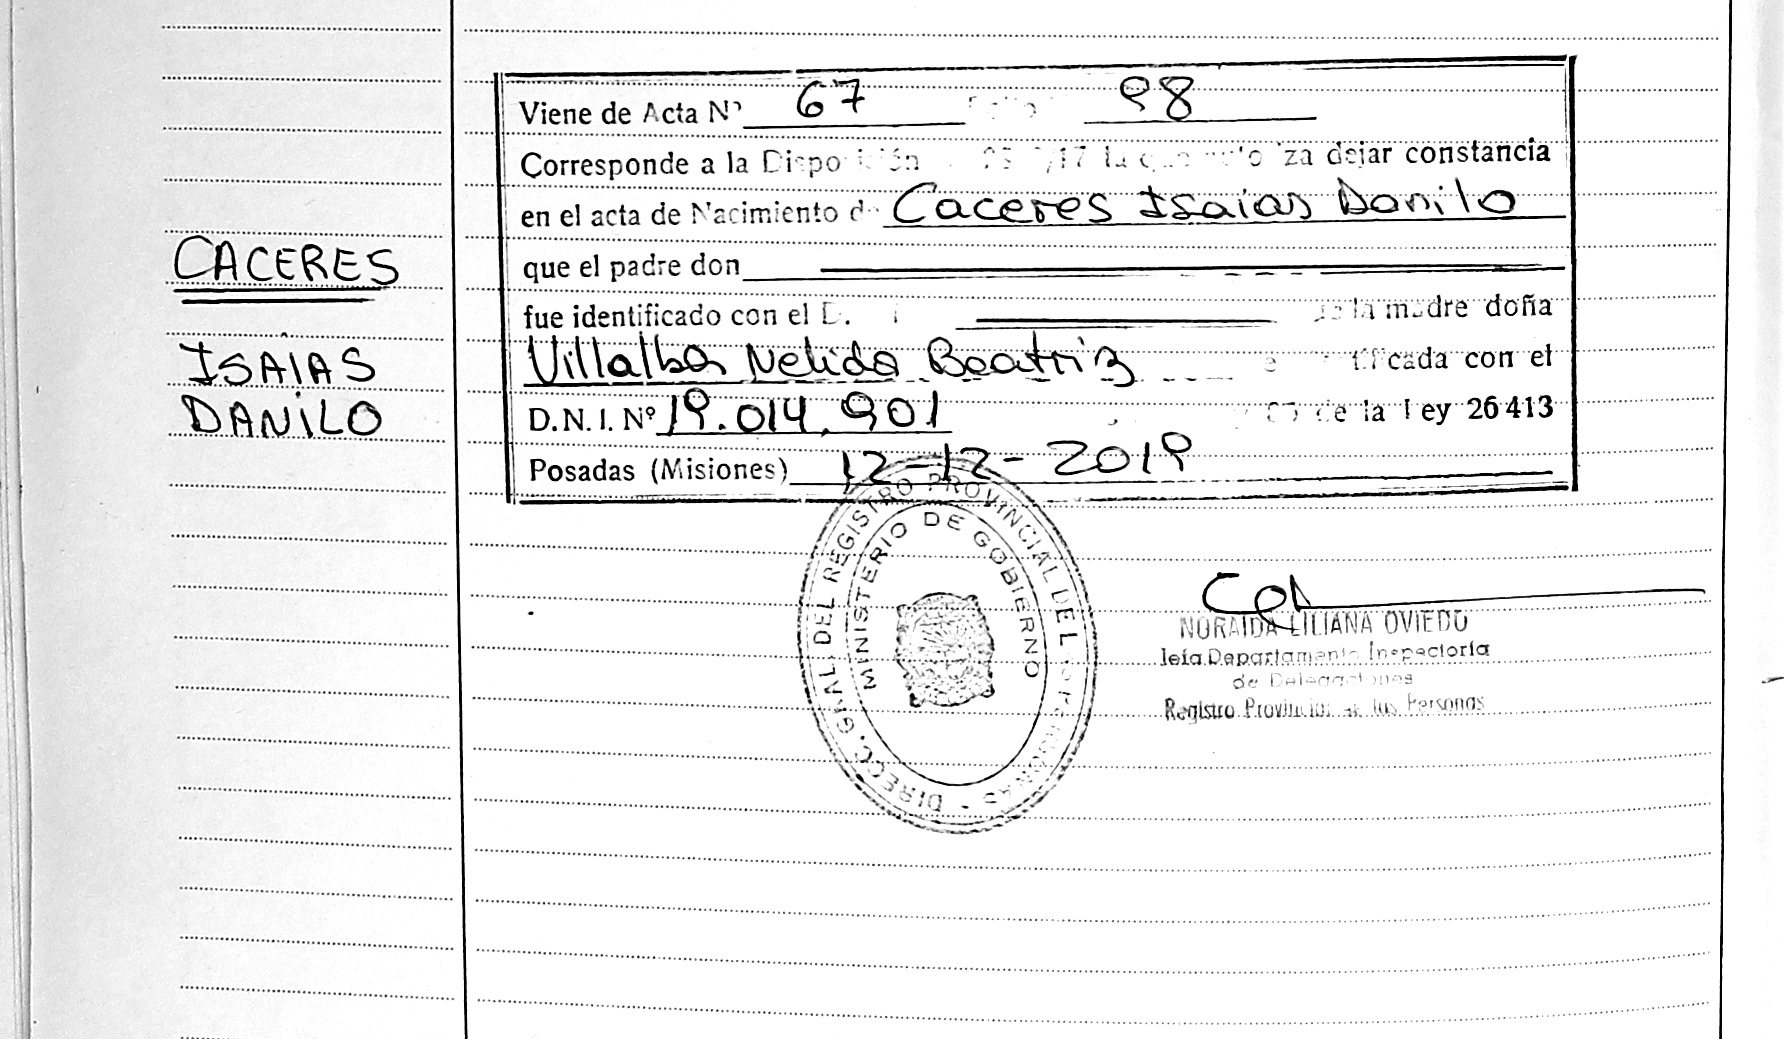 CACERES
ISAIAS
DANILO
Viene de Acta Nº 67 98
Corresponde a la dejar constancia
en el acta de Nacimiento de Caceres Isaias Danilo
que el padre don
fue identificado con el D. la madre doña
Villalba Nelida Beatriz con el
D.N.I. Nº 19.014.901 de la Ley 26413
Posadas (Misiones) 12-12-2019
DIRECC. GRAL. DEL REGISTRO PROVINCIAL DE LAS PERSONAS
MINISTERIO DE GOBIERNO
NORAIDA LILIANA OVIEDO
Jefa Departamento Inspectoría
de Delegaciones
Registro Provincial de las Personas